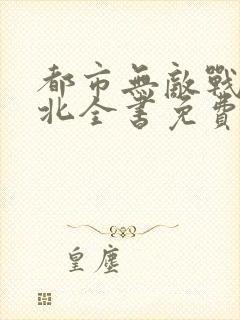 都市無敵戰
北全書免費
皇塵